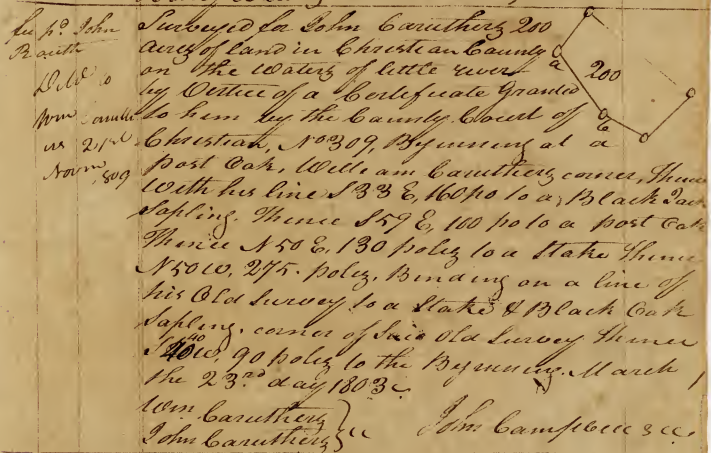 Surveyed for John Caruthers 200
acres of land in Christian County
on the Waters of little river
by Vertice of a Certificate Granted
to him by the County Court of
Christian, No 309, Begunning at a
post Oak, William Caruthers corner, Thence
With his line S 33 E, 160 po to a Black Jack
Sapling. Thence S 59 E, 100 po to a post Oak
Thence N 50 E, 130 poles to a Stake Thence
N 50 W, 275 poles, Binding on a line of
his Old Survey to a Stake & Black Oak
Sapling, corner of Said Old Survey Thence
S 40 W, 90 poles to the Begunning. March
the 23rd day 1803
Wm Caruthers
John Caruthers
John Campbell
fee pd John
Deld to
Wm
21st
Novm 1809
a
200